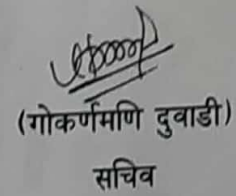 (गोकर्णमणि दुवाडी)
सचिव